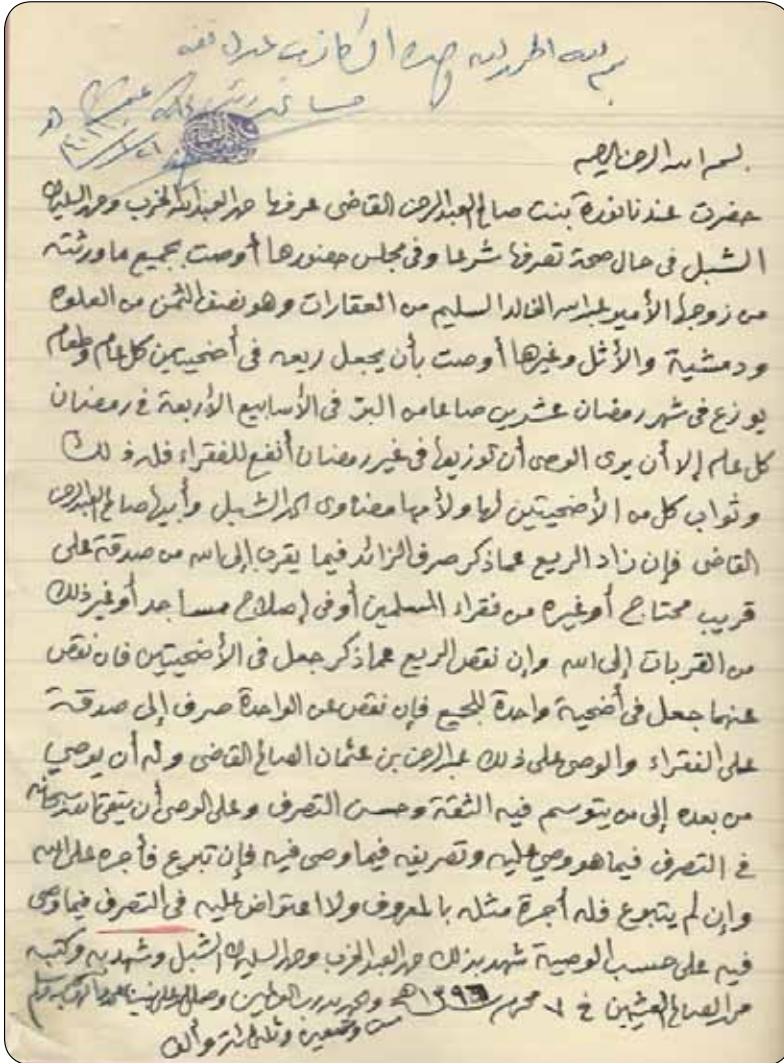 بسم الله الحمد لله وحده الكاتب عدل ثقة
بسم الله الرحمن الرحيم
حضرت عندنا نورة بنت صالح العبدالرحمن القاضي عرفها حمد العبدالله الخرب وحمد السليمان
الشبل في حال صحة تصرفها شرعا وفي مجلس حضورها أوصت بجميع ما ورثته
من زوجها الأمير عبدالله الخالد السليم من العقارات وهو نصف الثمن من العلوه
ودمشية والأثل وغيرها أوصت بأن يجعل ريعه في أضحيتين كل عام وطعام
يوزع في شهر رمضان عشرين صاعا من البر في الأسابيع الأربعة في رمضان
كل عام إلا أن يرى الوصي أن توزيعها في غير رمضان أنفع للفقراء فله ذلك
وثواب كل من الأضحيتين لها ولأمها الشبل وأبيها صالح العبدالرحمن
القاضي فإن زاد الريع عما ذكر صرف الزائد فيما يقرب إلى الله من صدقة على
قريب محتاج أو غيره من فقراء المسلمين أو في إصلاح مساجد أو غير ذلك
من القربات إلى الله وإن نقص الريع عما ذكر جعل في الأضحيتين فان نقص
عنهما جعل في أضحية واحدة للجميع فإن نقص عن الواحدة صرف إلى صدقة
على الفقراء والوصي على ذلك عبدالرحمن بن عثمان الصالح القاضي وله أن يوصي
من بعده إلى من يتوسم فيه الثقة وحسن التصرف وعلى الوصي أن يتقي الله سبحانه
في التصرف فيما هو وصي عليه وتصريفه فيما وصى فيه فإن تبرع فأجره على الله
وإن لم يتبرع فله أجرة مثله بالمعروف ولا اعتراض عليه في التصرف فيما وصي
فيه على حسب الوصية شهد بذلك حمد العبدالله الخرب وحمد السليمان الشبل وشهد به وكتبه
محمد الصالح العثيمين في ٧ محرم ١٣٩٦هـ والحمد لله رب العالمين وصلى الله على نبينا محمد وآله وصحبه وسلم
ست وتسعين وثلاثمائة وألف